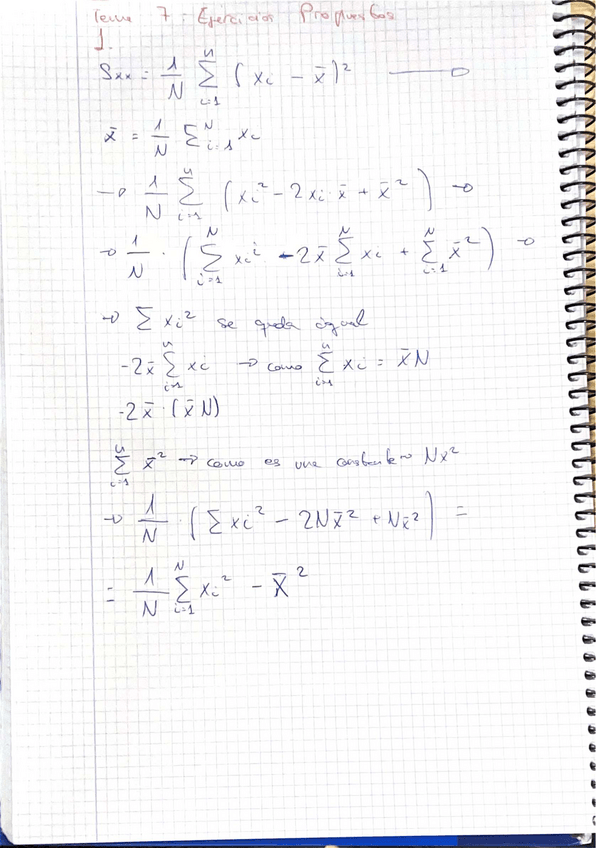 Tema 7: Ejercicios Propuestos
1.
Sxx = 1/N Σ_{i=1}^{n} (xi - x̄)² →
x̄ = 1/N Σ_{i=1}^{N} xi
→ 1/N Σ_{i=1}^{n} (xi² - 2xi·x̄ + x̄²) →
→ 1/N · (Σ_{i=1}^{N} xi^i - 2x̄ Σ_{i=1}^{N} xi + Σ_{i=1}^{N} x̄²) →
→ Σ xi² se queda igual
-2x̄ Σ_{i=1}^{n} xi → como Σ_{i=1}^{n} xi = x̄N
-2x̄ · (x̄N)
Σ_{i=1}^{n} x̄² → como es una constante → Nx²
→ 1/N · (Σ xi² - 2Nx̄² + Nx̄²) =
= 1/N Σ_{i=1}^{N} xi² - x̄²